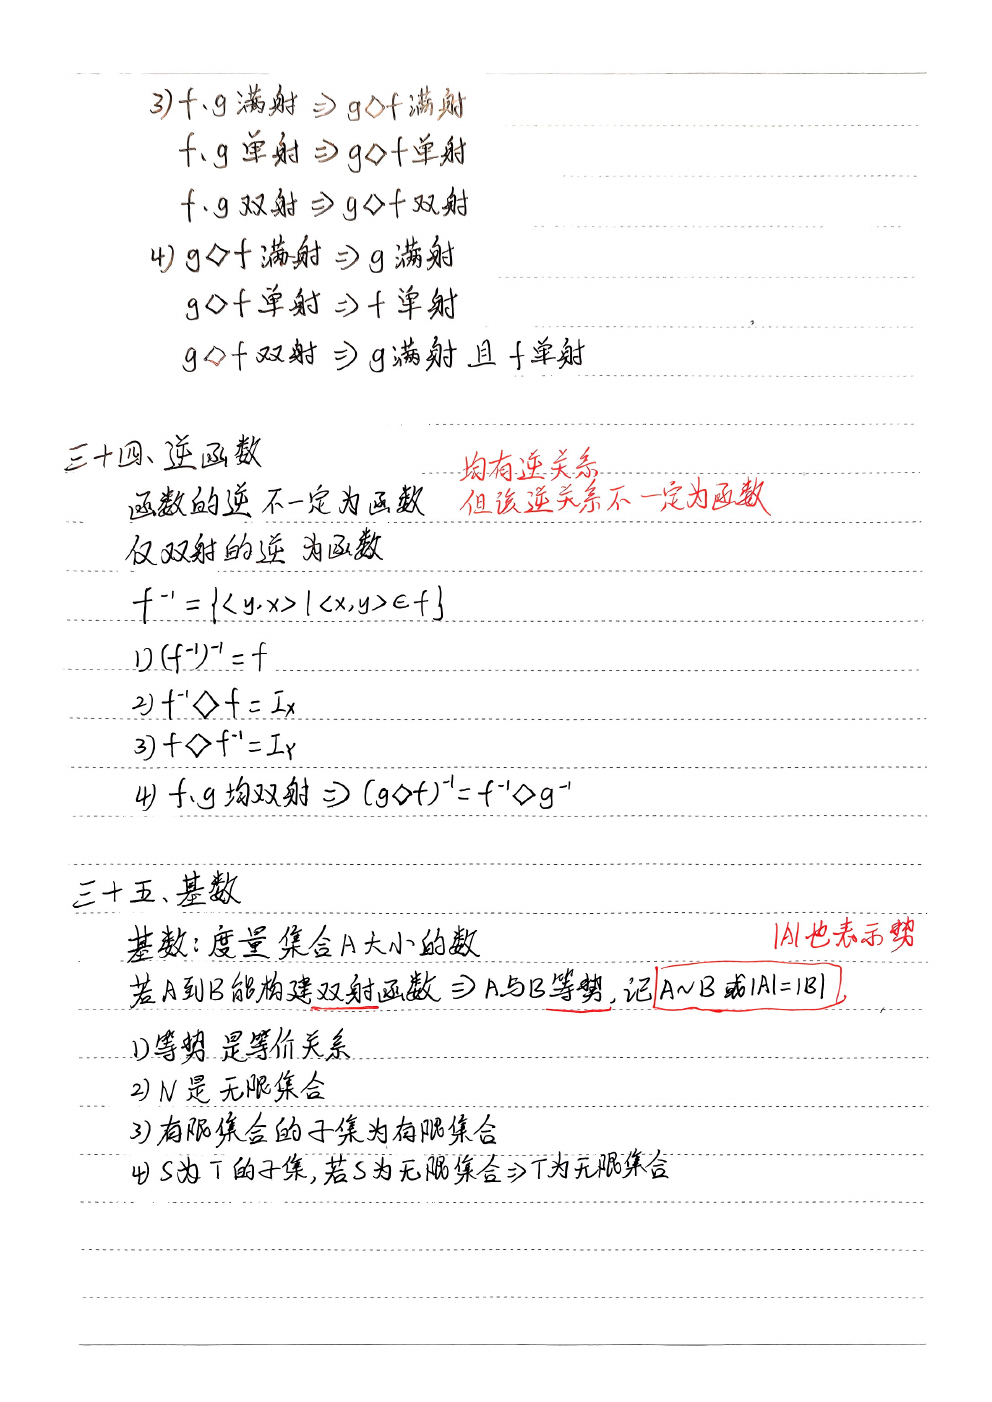 3) f、g 满射 ⇒ g◇f 满射
f、g 单射 ⇒ g◇f 单射
f、g 双射 ⇒ g◇f 双射
4) g◇f 满射 ⇒ g 满射
g◇f 单射 ⇒ f 单射
g◇f 双射 ⇒ g 满射 且 f 单射
三十四、逆函数
均有逆关系
函数的逆 不一定为函数 但该逆关系不一定为函数
仅双射的逆 为函数
f⁻¹ = {<y,x> | <x,y> ∈ f}
1) (f⁻¹)⁻¹ = f
2) f⁻¹◇f = Iₓ
3) f◇f⁻¹ = I_Y
4) f、g 均双射 ⇒ (g◇f)⁻¹ = f⁻¹◇g⁻¹
三十五、基数
|A|也表示势
基数：度量集合A大小的数
若A到B能构建双射函数 ⇒ A与B等势，记 A~B 或 |A|=|B|
1) 等势 是等价关系
2) N 是 无限集合
3) 有限集合的子集为有限集合
4) S为T的子集, 若S为无限集合 ⇒ T为无限集合